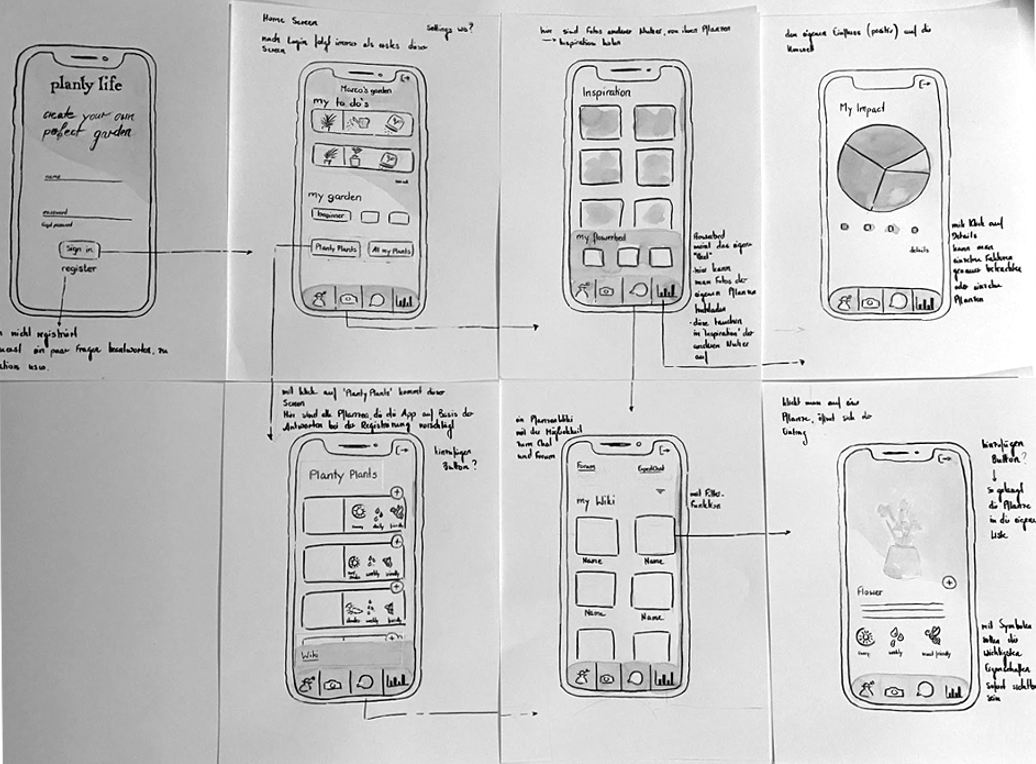 planty life
create your own
perfect garden
name
password
forgot password
Sign in
register
nicht registriert
ein paar Fragen beantworten, zu
usw.
Home Screen
Settings wo?
nach Login folgt immer als erstes dieser
Screen
Marco's garden
my to do's
my garden
beginner
Planty Plants
All my Plants
hier sind Fotos anderer Nutzer, von ihren Pflanzen
→ Inspiration holen
Inspiration
my flowerbed
flowerbed
meint das eigene
"Beet"
hier kann
man Fotos der
eigenen Pflanzen
hochladen
- diese tauchen
in 'Inspiration' der
anderen Nutzer
auf
den eigenen Einfluss (positiv) auf die
Umwelt
My Impact
details
mit Klick auf
Details
kann man
einzelne Faktoren
genauer betrachten
oder einzelne
Pflanzen
mit Klick auf 'Planty Plants' kommt dieser
Screen
Hier sind alle Pflanzen, die die App auf Basis der
Antworten bei der Registrierung vorschlägt
hinzufügen
Button?
Planty Plants
sunny
daily
weekly
shadow
weekly
Wiki
ein PflanzenWiki
mit der Möglichkeit
zum Chat
und Forum
Forum
ExpertChat
my Wiki
mit Filter-
Funktion
Name
Name
Name
Name
klickt man auf eine
Pflanze, öffnet sich der
Eintrag
hinzufügen
Button?
so gelangt
die Pflanze
in die eigene
Liste
Flower
sunny
weekly
insect friendly
mit Symbolen
sollen die
wichtigsten
Eigenschaften
sofort sichtbar
sein